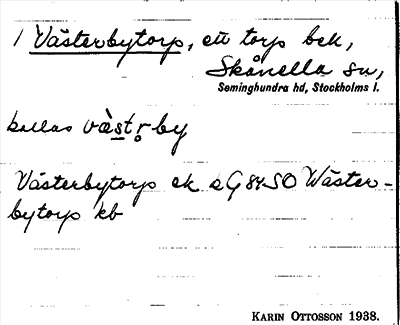 1 Västerbytorp, ett torp bek,
Skånella sn,
Seminghundra hd, Stockholms l.
kallas væ̀st r̥by
Västerbytorp ek a G 84 SO Wäster-
bytorp kb
KARIN OTTOSSON 1938.